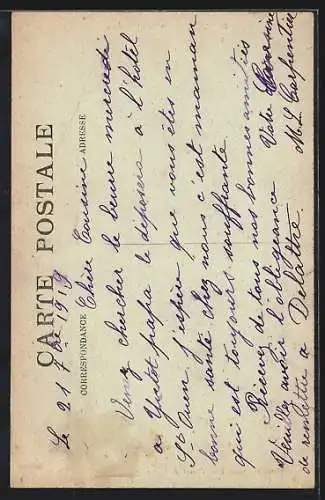 CARTE POSTALE
CORRESPONDANCE
ADRESSE
Le 21 7bre 1919
Chère Cousine
Venez chercher le beurre mercredi
a Yvetot papa le déposera à l'hôtel
St Ouen j'espère que vous êtes en
bonne santé chez nous c'est maman
qui est toujours souffrante.
Recevez de tous nos bonnes amitiés
Votre Cousine
M L Carpentier
Veuillez avoir l'obligeance
de remettre a Delattre.